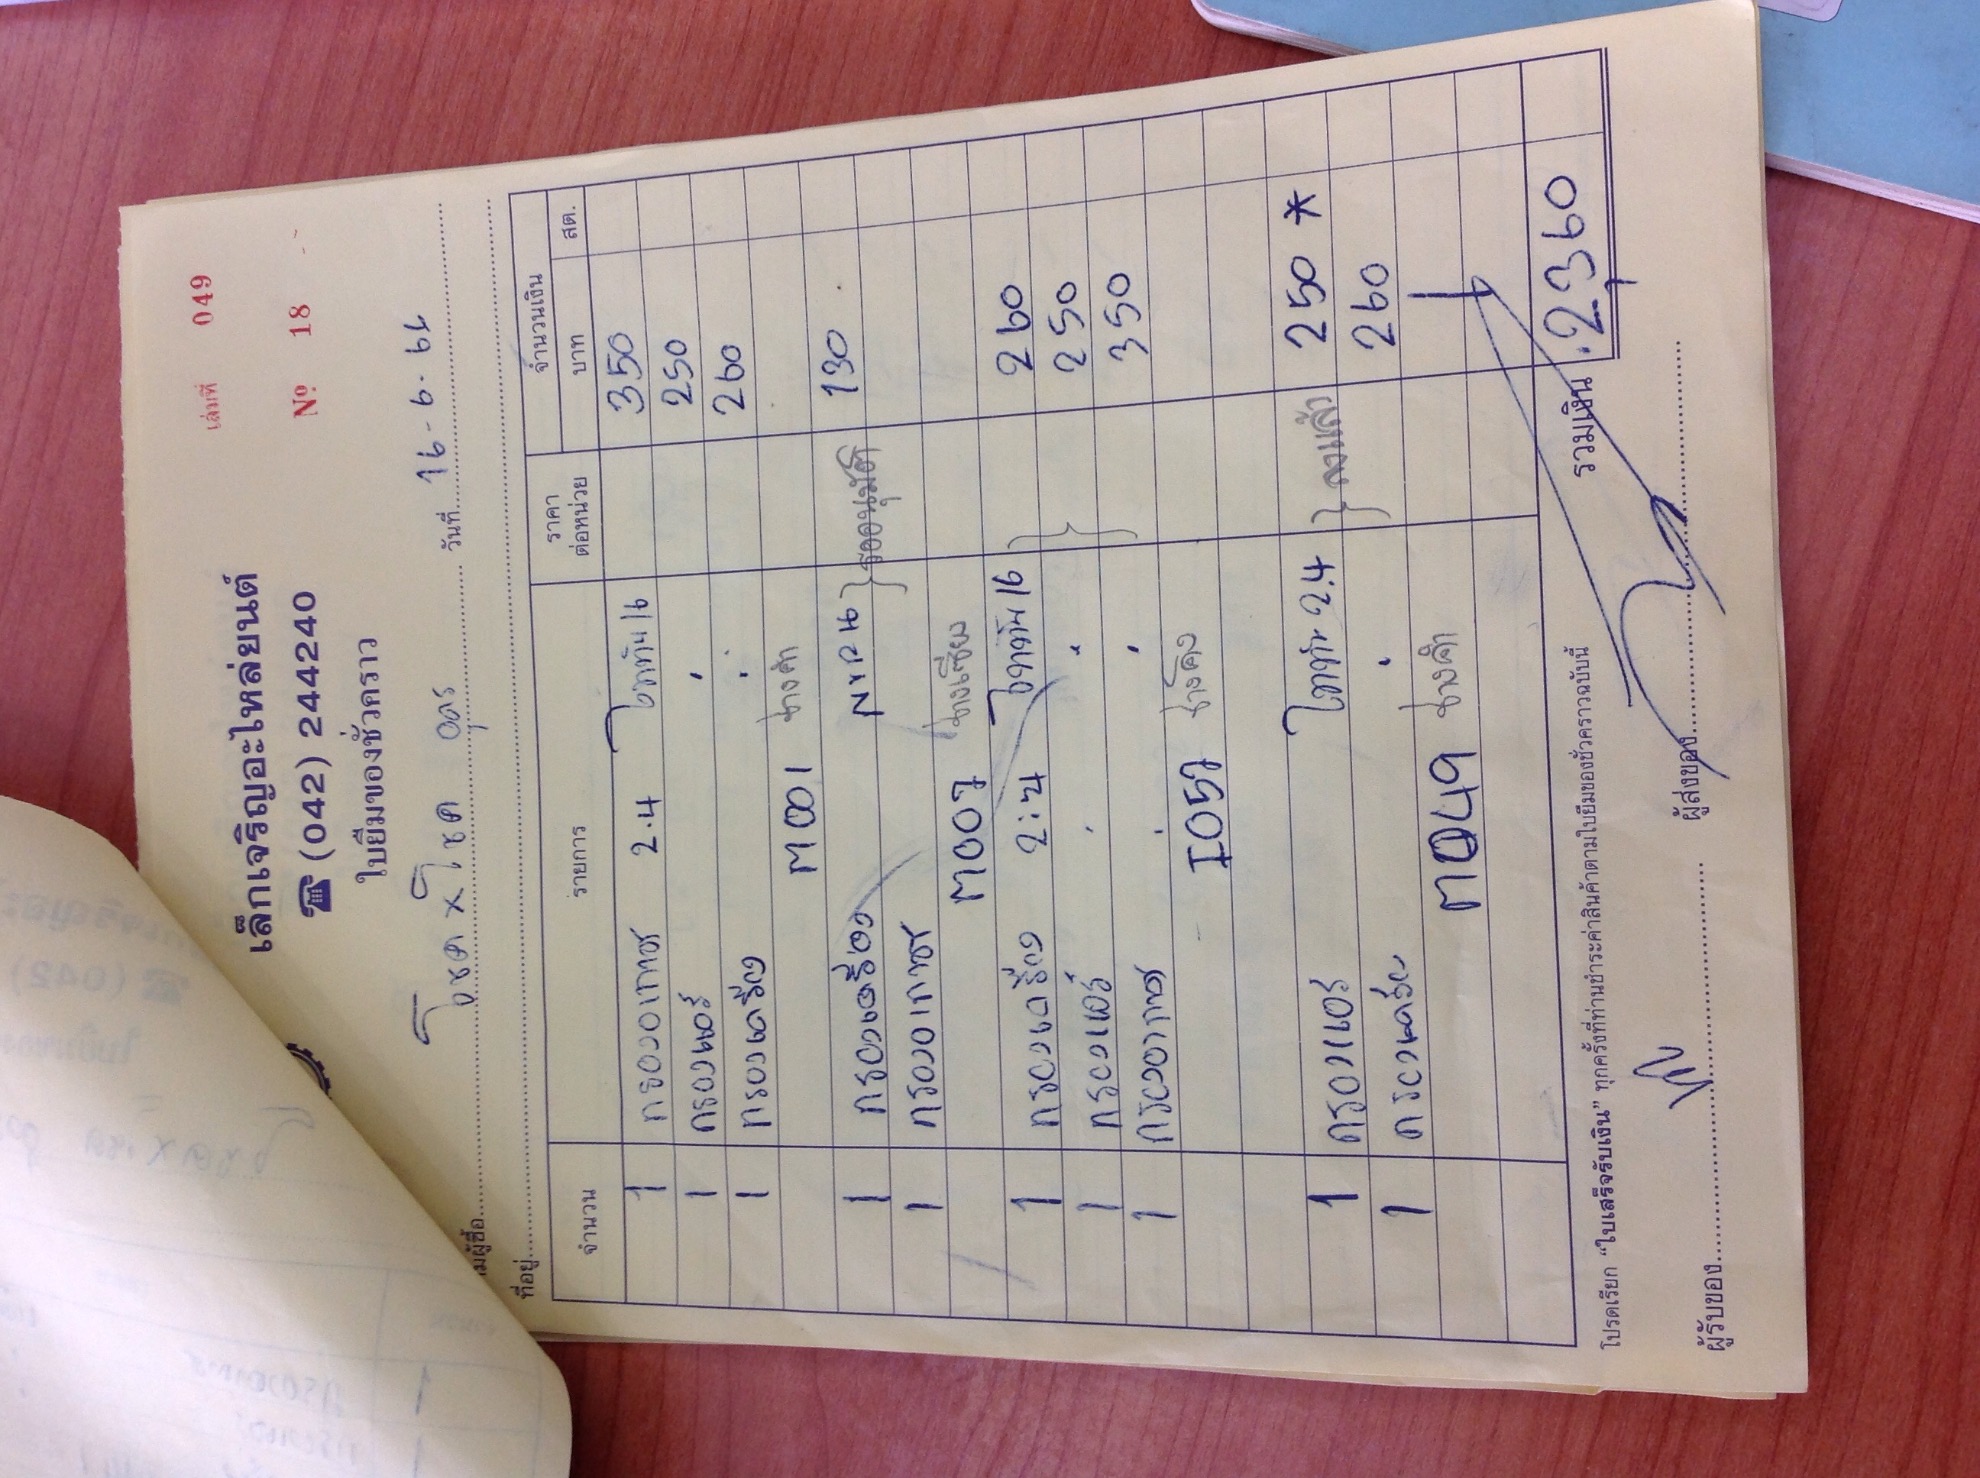 เล่มที่ 049
เล็กเจริญอะไหล่ยนต์
☎ (042) 244240
Nº 18
ใบยืมของชั่วคราว
โชค x โชค อุดร วันที่ 16-6-66
ที่อยู่
จำนวน รายการ ราคาต่อหน่วย จำนวนเงิน
บาท สต.
1 กรองอากาศ 2.4 350
1 กรองแอร์ 250
1 กรองเครื่อง 260
M001 ช่างคำ
1 กรองเครื่อง } รออนุมัติ 130
1 กรองอากาศ
M007 ช่างเซียง
1 กรองเครื่อง 260
1 กรองแอร์ 250
1 กรองอากาศ 350
I057 ช่างโคง
1 กรองแอร์ 2.4 } ลงแล้ว 250 *
1 กรองเครื่อง 260
M049 ช่างคำ
รวมเงิน 2360
โปรดเรียก "ใบเสร็จรับเงิน" ทุกครั้งที่ท่านชำระค่าสินค้าตามใบยืมของชั่วคราวฉบับนี้
ผู้รับของ ผู้ส่งของ